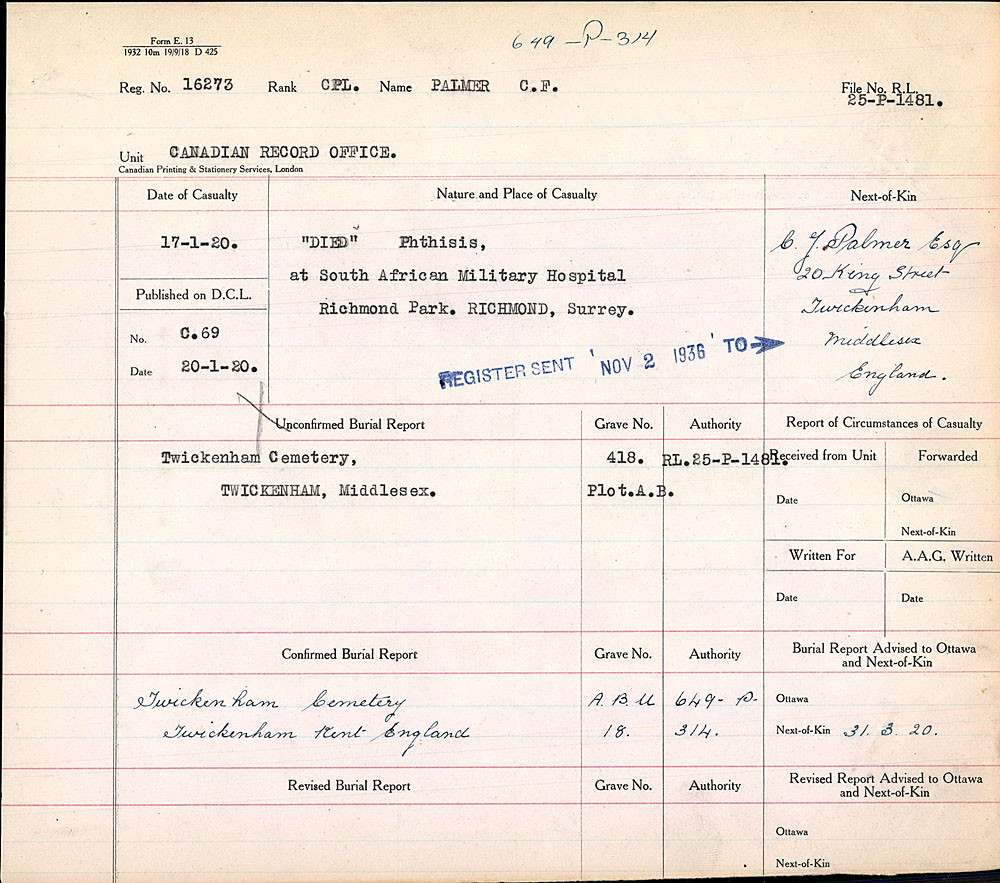 Form E. 13
1932 10m 19/9/18 D 425
649-P-314
Reg. No. 16273 Rank CPL. Name PALMER C.F.
File No. R.L.
25-P-1481.
Unit CANADIAN RECORD OFFICE.
Canadian Printing & Stationery Services, London
Date of Casualty
Nature and Place of Casualty
Next-of-Kin
17-1-20.
"DIED" Phthisis,
at South African Military Hospital
Richmond Park. RICHMOND, Surrey.
C. F. Palmer Esq
20 King Street
Twickenham
Middlesex
England.
Published on D.C.L.
No. C.69
Date 20-1-20.
REGISTER SENT ' NOV 2 1936 ' TO
Unconfirmed Burial Report
Grave No.
Authority
Report of Circumstances of Casualty
Twickenham Cemetery,
418.
RL.25-P-1481.
TWICKENHAM, Middlesex.
Plot.A.B.
Received from Unit
Forwarded
Date
Ottawa
Next-of-Kin
Written For
A.A.G. Written
Date
Date
Confirmed Burial Report
Grave No.
Authority
Burial Report Advised to Ottawa
and Next-of-Kin
Twickenham Cemetery
A.B.U
649-P-
Ottawa
Twickenham Kent England
18.
314.
Next-of-Kin 31. 3. 20.
Revised Burial Report
Grave No.
Authority
Revised Report Advised to Ottawa
and Next-of-Kin
Ottawa
Next-of-Kin